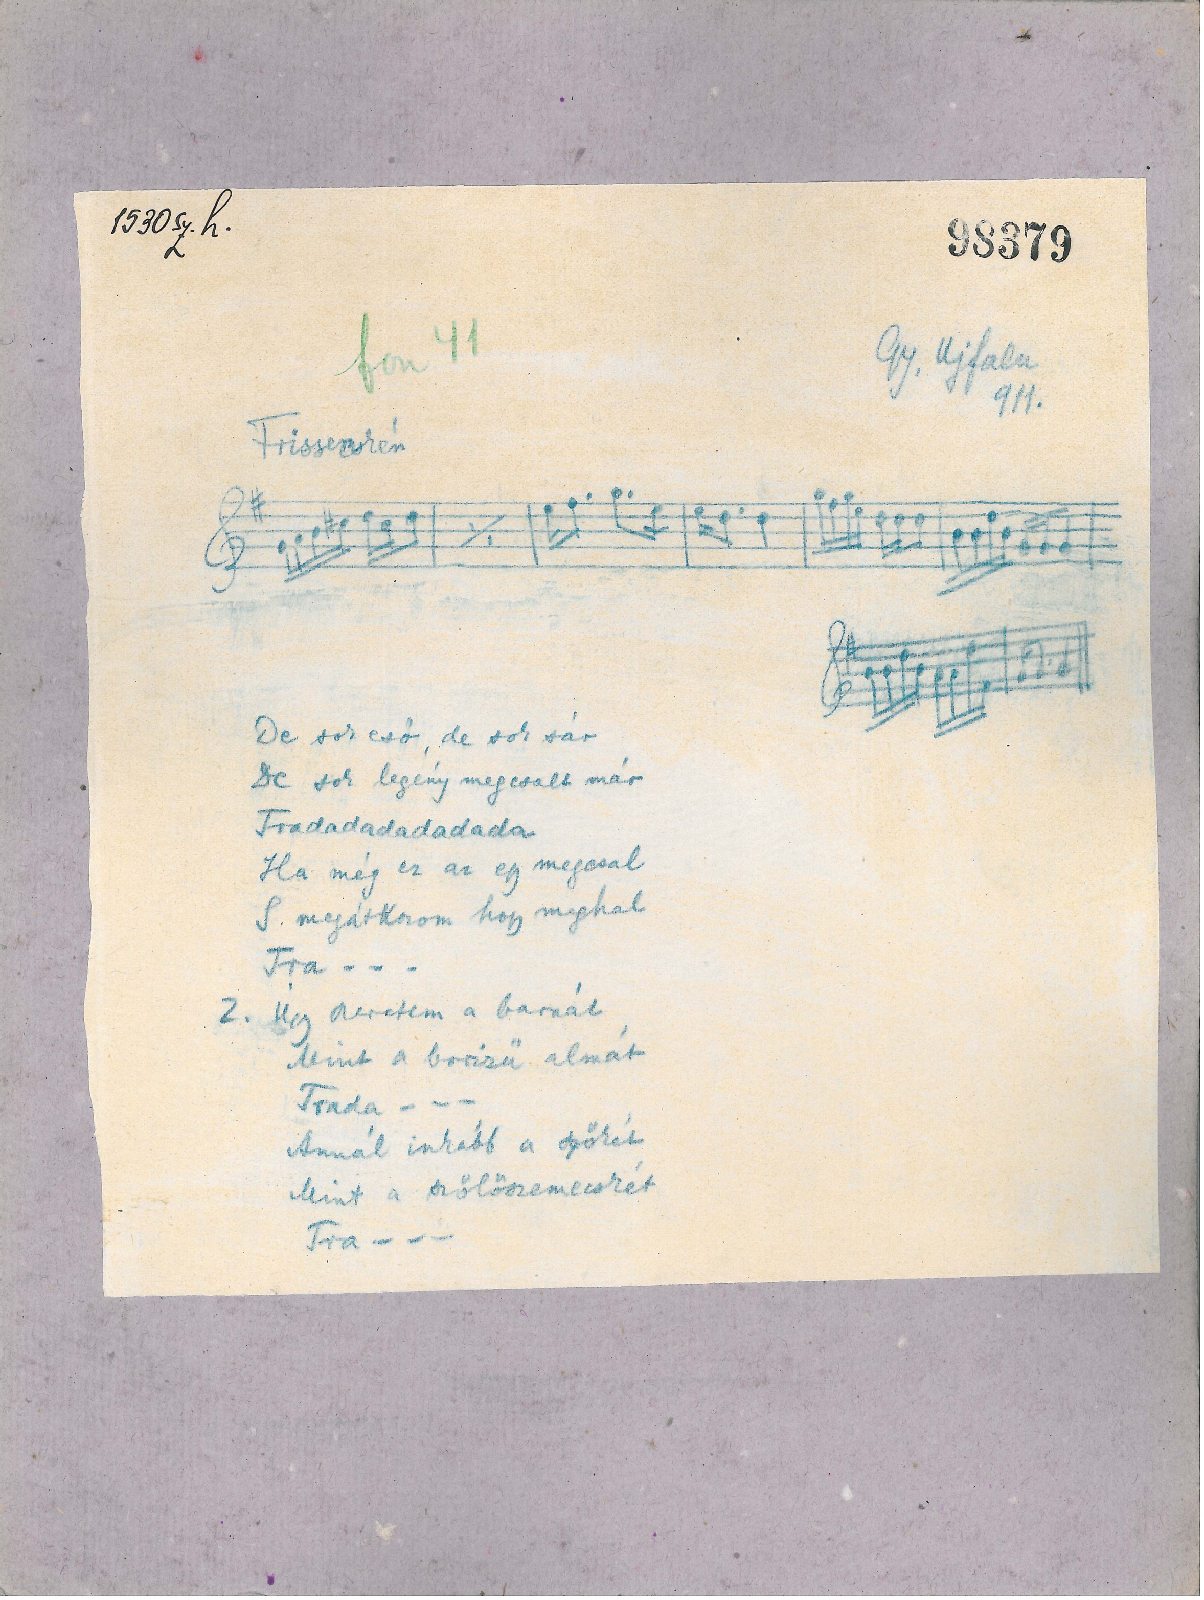 1530 sz. h.
98379
fon 41
Gy. Ujfalu
911.
Frissecskén
De sok eső, de sok sár
De sok legény megcsalt már
Tradadadadadada
Ha még ez az egy megcsal
S. megátkozom hogy meghal
Tra - - -
2. Úgy szeretem a barnát
Mint a borizű almát
Trada - - -
Annál inkább a szőkét
Mint a szőlőszemecskét
Tra - - -